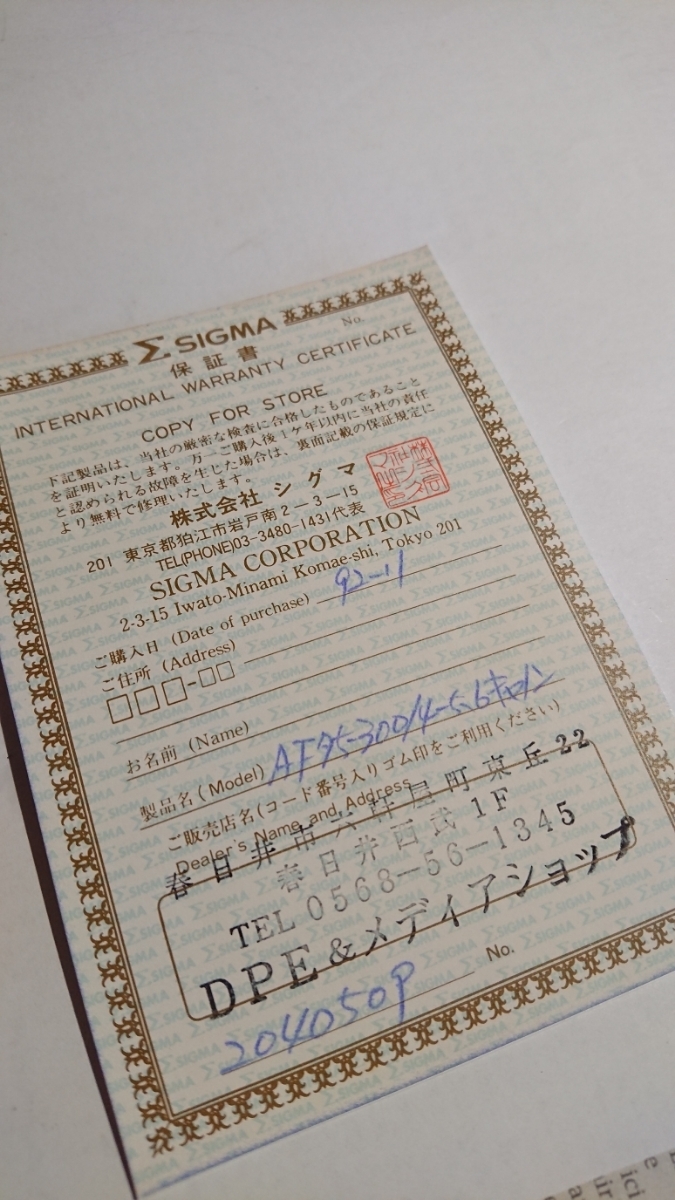 Σ SIGMA
No.
保証書
INTERNATIONAL WARRANTY CERTIFICATE
COPY FOR STORE
下記製品は、当社の厳密な検査に合格したものであること
を証明いたします。万一ご購入後1ケ年以内に当社の責任
と認められる故障を生じた場合は、裏面記載の保証規定に
より無料で修理いたします。
株式会社 シグマ
201 東京都狛江市岩戸南2-3-15
TEL(PHONE)03-3480-1431代表
SIGMA CORPORATION
2-3-15 Iwato-Minami Komae-shi, Tokyo 201
ご購入日 (Date of purchase) 92-11
ご住所 (Address)
お名前 (Name)
製品名 (Model) AF75-300/4-5.6キヤノン
ご販売店名(コード番号入りゴム印をご利用ください)
Dealer's Name and Address
春日井市六軒屋町東丘22
春日井西武1F
TEL 0568-56-1345
DPE&メディアショップ
No.
204050P